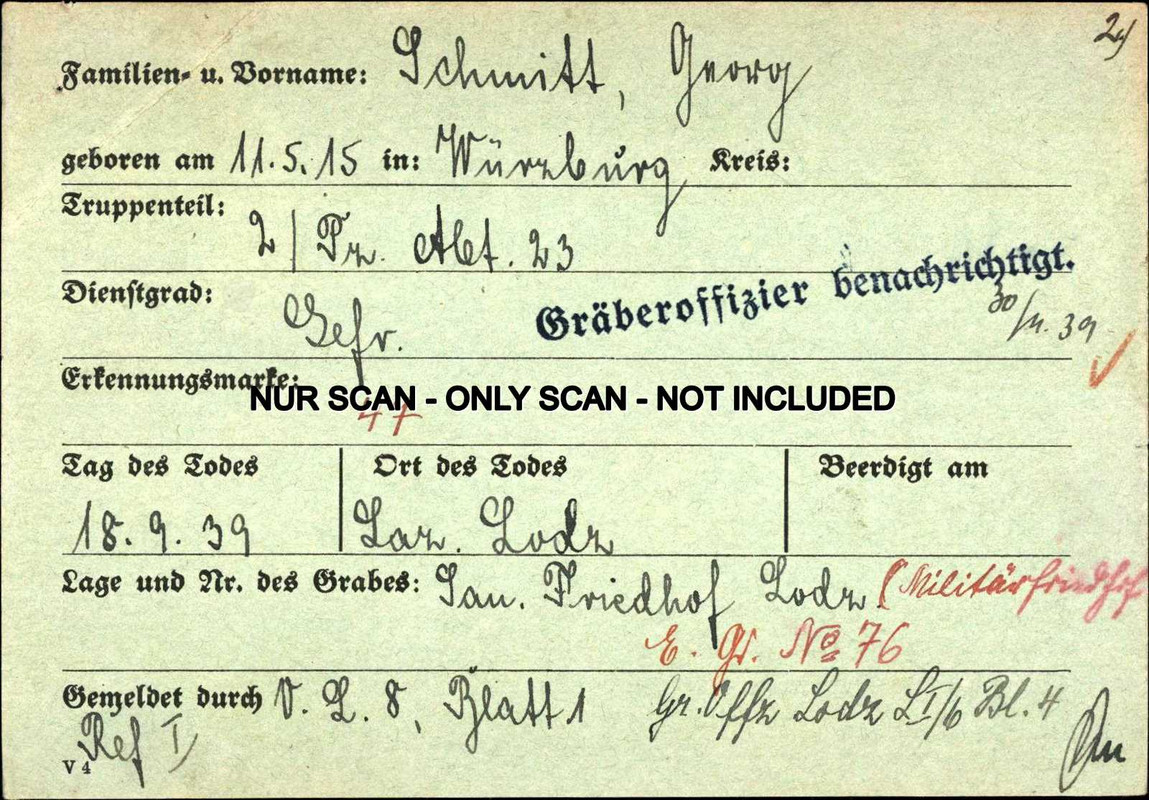 2)
Familien- u. Vorname: Schmitt, Georg
geboren am 11.5.15 in: Würzburg Kreis:
Truppenteil: 2/ Pz. Abt. 23
Gräberoffizier benachrichtigt.
Dienstgrad: Gefr.
30/11. 39
Erkennungsmarke: 47
NUR SCAN - ONLY SCAN - NOT INCLUDED
Tag des Todes Ort des Todes Beerdigt am
18. 9. 39 Laz. Lodz
Lage und Nr. des Grabes: San. Friedhof Lodz (Militärfriedhof
E. Gr. No 76
Gemeldet durch V. L. 8, Blatt 1 Gr. Offz Lodz L I/6 Bl. 4
Ref I
V 4